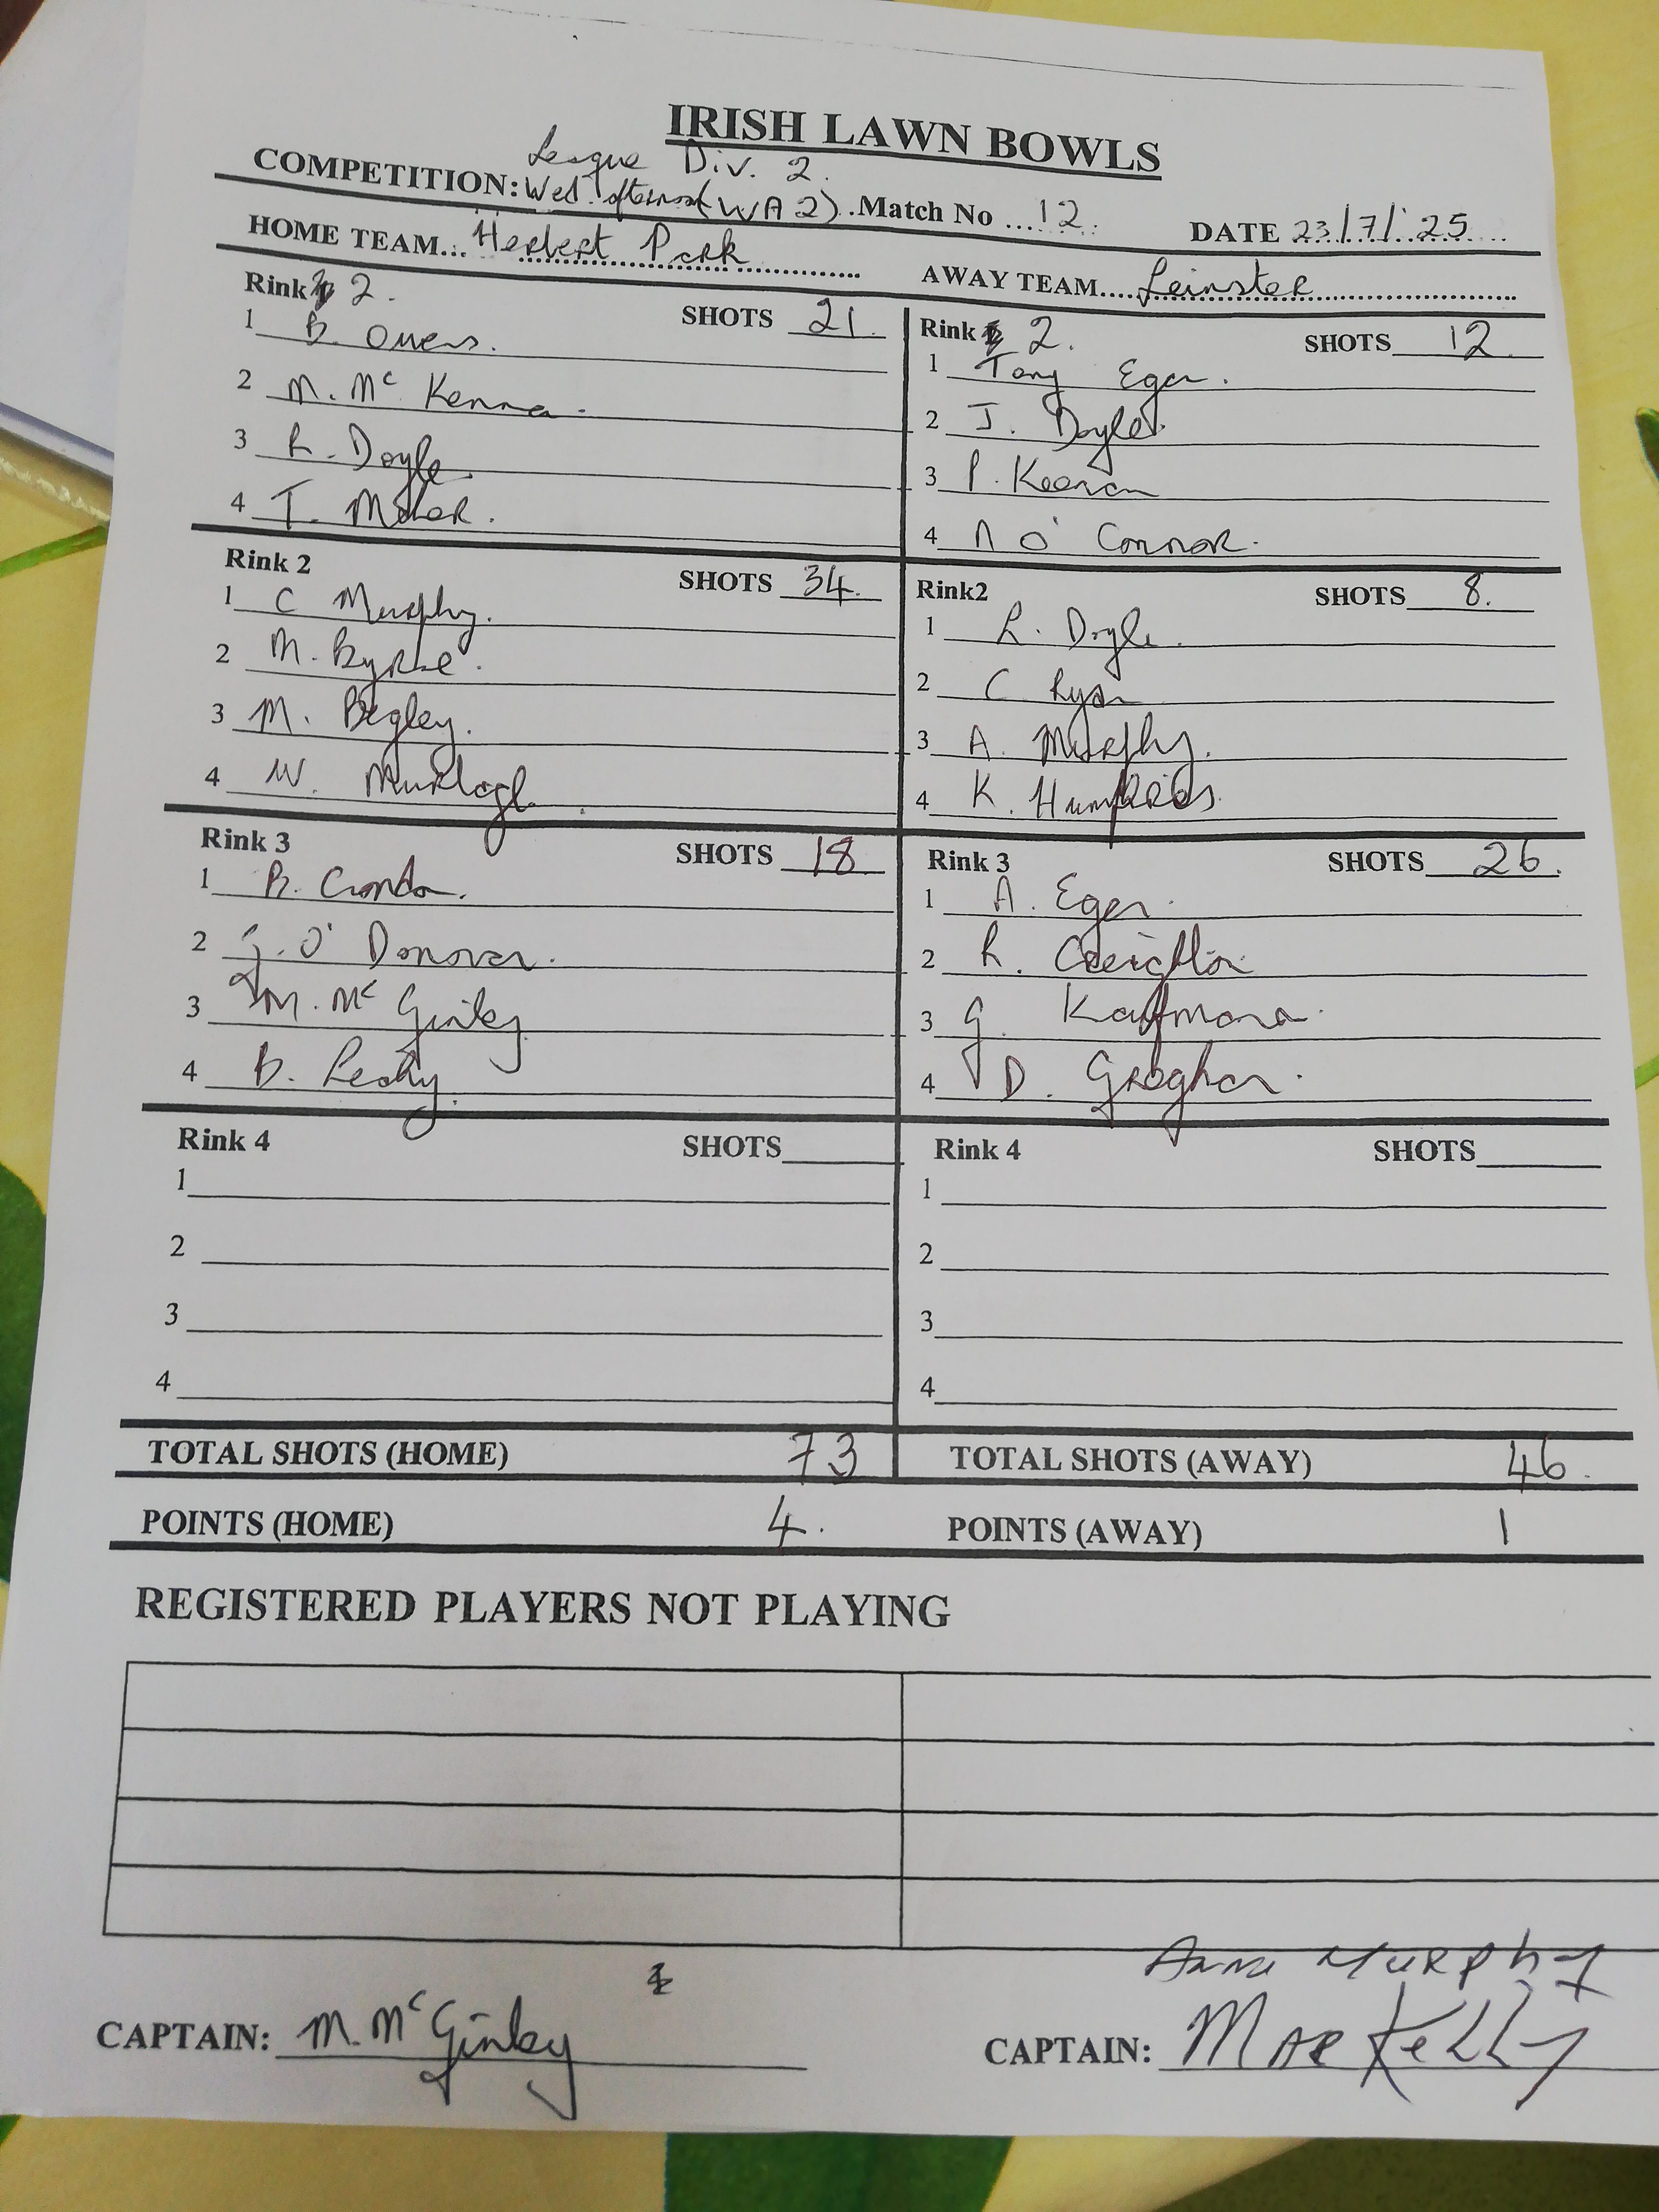 IRISH LAWN BOWLS
League Div. 2.
COMPETITION: Wed. afternoon (WA2). Match No ....12. DATE 23/7/'25
HOME TEAM... Herbert Park AWAY TEAM.... Leinster
Rink 2. SHOTS 21.
1 B. Owens.
2 M. Mc Kenna.
3 R. Doyle
4 T. Maher.
Rink 2. SHOTS 12
1 Tony Egan.
2 J. Doyle.
3 P. Keenan
4 A O' Connor.
Rink 2 SHOTS 34.
1 C Murphy.
2 M. Byrne.
3 M. Begley.
4 W. Murtagh
Rink2 SHOTS 8.
1 R. Doyle.
2 C Ryan
3 A. Murphy.
4 K. Humphries.
Rink 3 SHOTS 18
1 B. Condon.
2 G. O' Donovan.
3 M. Mc Ginley
4 B. Leahy.
Rink 3 SHOTS 26.
1 A. Egan.
2 R. Creighton
3 G. Kaufmann.
4 D. Groghan.
Rink 4 SHOTS
1
2
3
4
Rink 4 SHOTS
1
2
3
4
TOTAL SHOTS (HOME) 73 TOTAL SHOTS (AWAY) 46.
POINTS (HOME) 4. POINTS (AWAY) 1
REGISTERED PLAYERS NOT PLAYING
Anne Murphy
CAPTAIN: M. Mc Ginley CAPTAIN: Mar Kelly